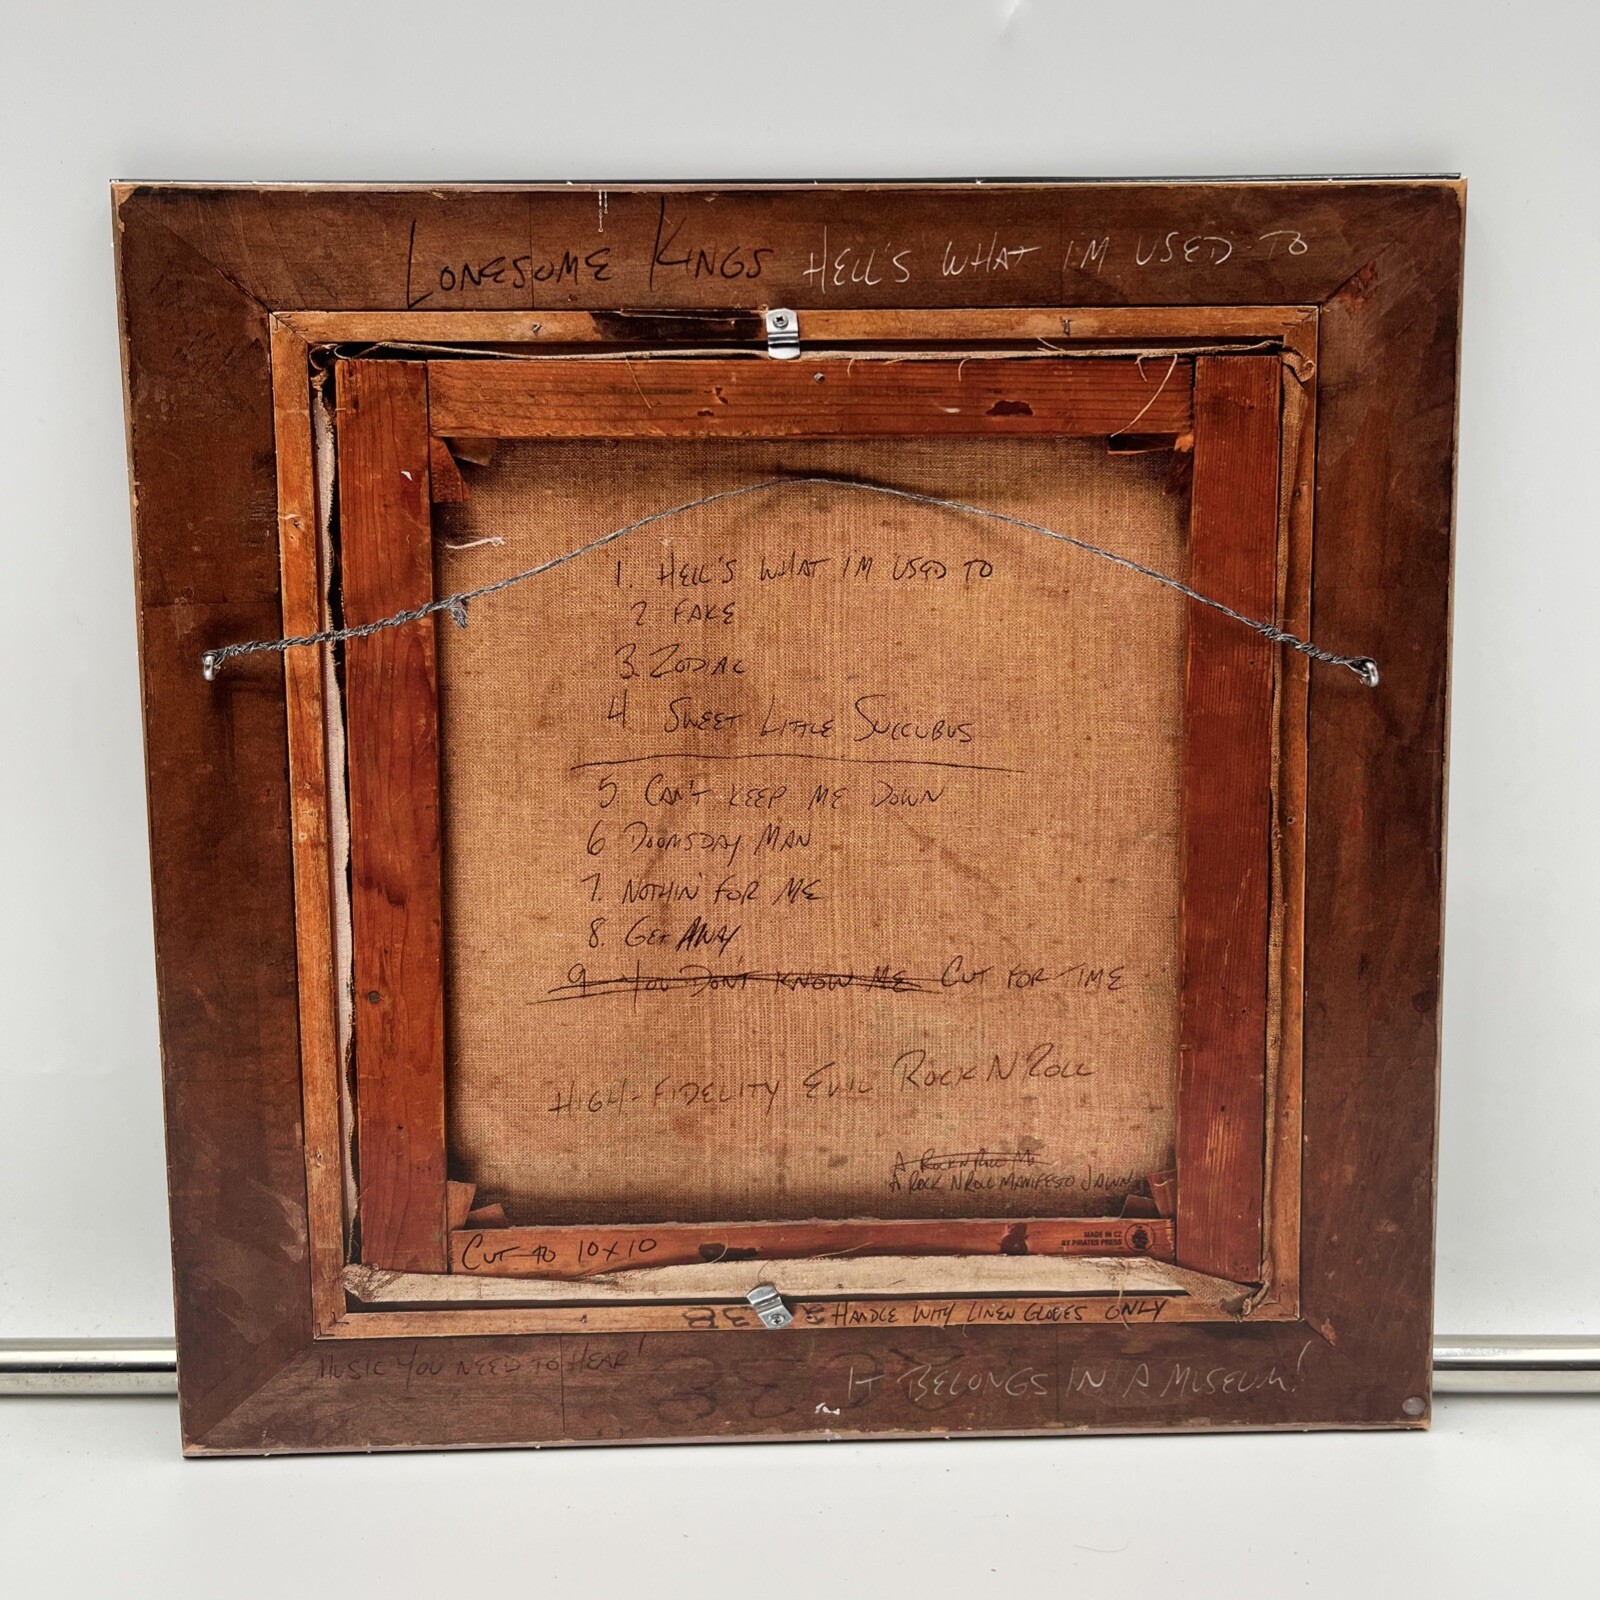 LONESOME KINGS HELL'S WHAT I'M USED TO
1. HELL'S WHAT I'M USED TO
2 FAKE
3. ZODIAC
4 SWEET LITTLE SUCCUBUS
5 CAN'T KEEP ME DOWN
6 DOOMSDAY MAN
7. NOTHIN' FOR ME
8. GET AWAY
9 YOU DON'T KNOW ME CUT FOR TIME
HIGH-FIDELITY EVIL ROCK N ROLL
A ROCK N ROLL MA
A ROCK N ROLL MANIFESTO JAWN
CUT TO 10X10
MADE IN CZ
BY PIRATES PRESS
HANDLE WITH LINEN GLOVES ONLY
MUSIC YOU NEED TO HEAR!
IT BELONGS IN A MUSEUM!